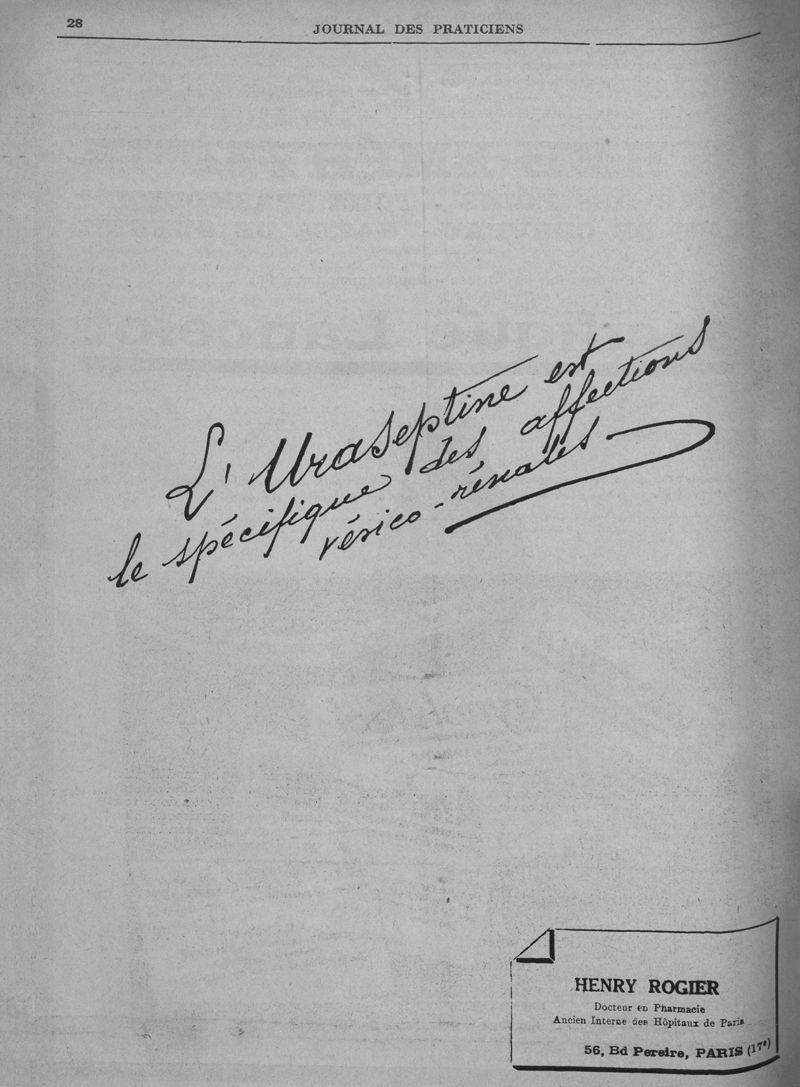 28
JOURNAL DES PRATICIENS
L'Uraseptine est
le spécifique des affections
vésico-rénales
HENRY ROGIER
Docteur en Pharmacie
Ancien Interne des Hôpitaux de Paris
56, Bd Pereire, PARIS (17e)